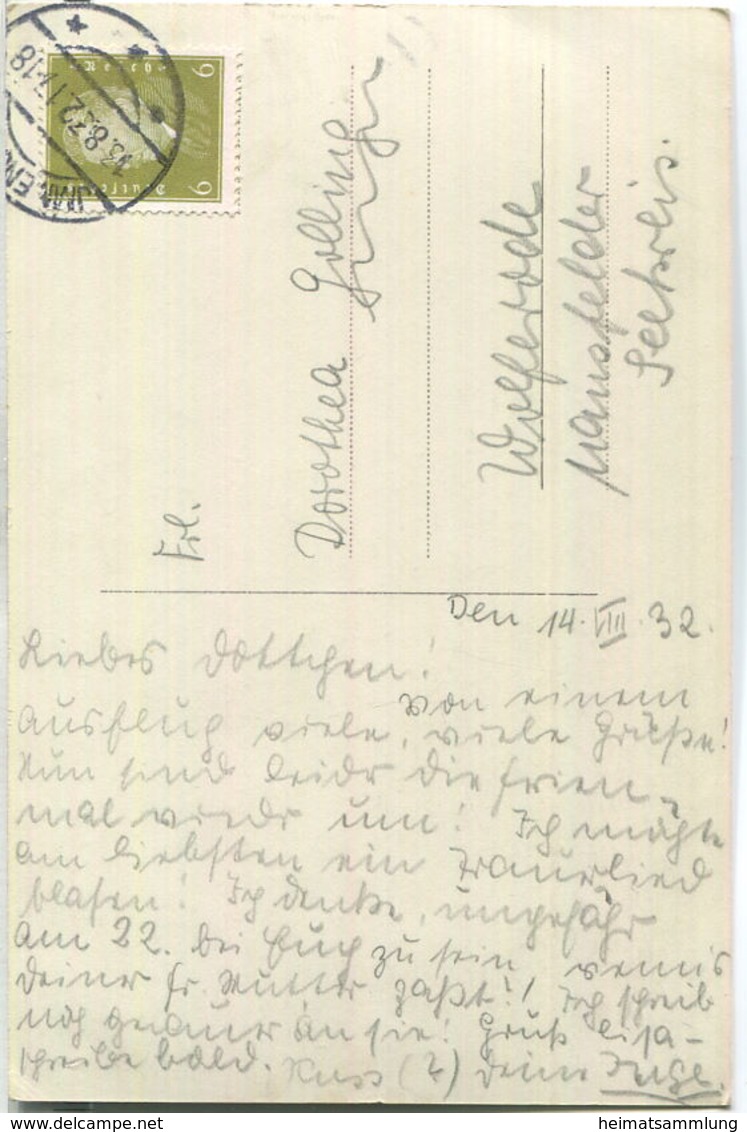 Frl.
Dorothea Gollinger
Wolferode
Mansfelder
Seekreis.
Den 14. VIII. 32.
Liebes Dottchen!
von einem
Ausflug viele, viele Grüße!
Nun sind leider die Ferien
mal wieder um! Ich möchte
am liebsten ein Trauerlied
blasen! Ich denke, ungefähr
am 22. bei Euch zu sein, wenns
Deiner Fr. Mutter paßt! Ich schreib
noch genauer an sie! Gruß Lisa-
schreibe bald. Kuss (2) Deine Inge.
6 6
13.8.32.17-18
heimatsammlung